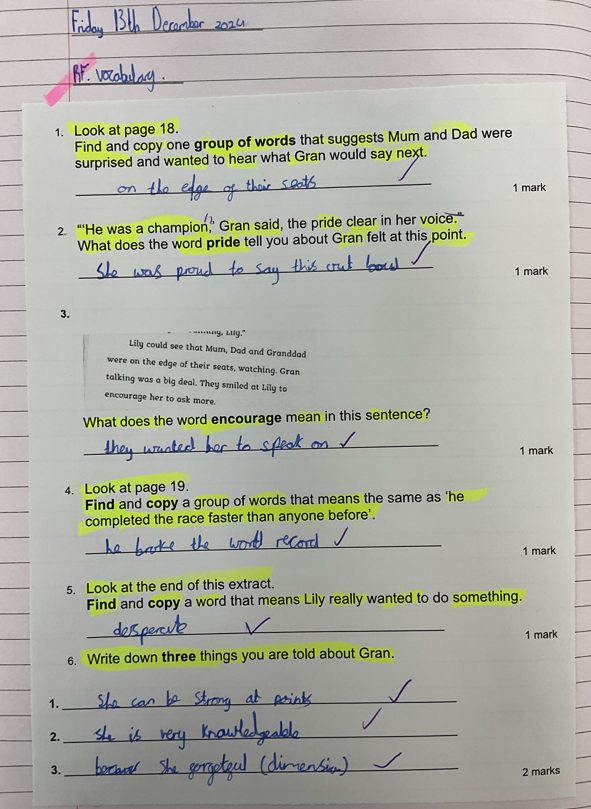 Friday 13th December 2024
RF. Vocabulary.
1. Look at page 18.
Find and copy one group of words that suggests Mum and Dad were
surprised and wanted to hear what Gran would say next.
on the edge of their seats
1 mark
2. "'He was a champion,' Gran said, the pride clear in her voice."
What does the word pride tell you about Gran felt at this point.
She was proud to say this
1 mark
3.
Lily."
Lily could see that Mum, Dad and Granddad
were on the edge of their seats, watching. Gran
talking was a big deal. They smiled at Lily to
encourage her to ask more.
What does the word encourage mean in this sentence?
they wanted her to speak on
1 mark
4. Look at page 19.
Find and copy a group of words that means the same as 'he
completed the race faster than anyone before'.
he broke the world record
1 mark
5. Look at the end of this extract.
Find and copy a word that means Lily really wanted to do something.
desperate
1 mark
6. Write down three things you are told about Gran.
1. She can be strong at points
2. she is very knowledgeable
3. She gorgetful (dimensia)
2 marks